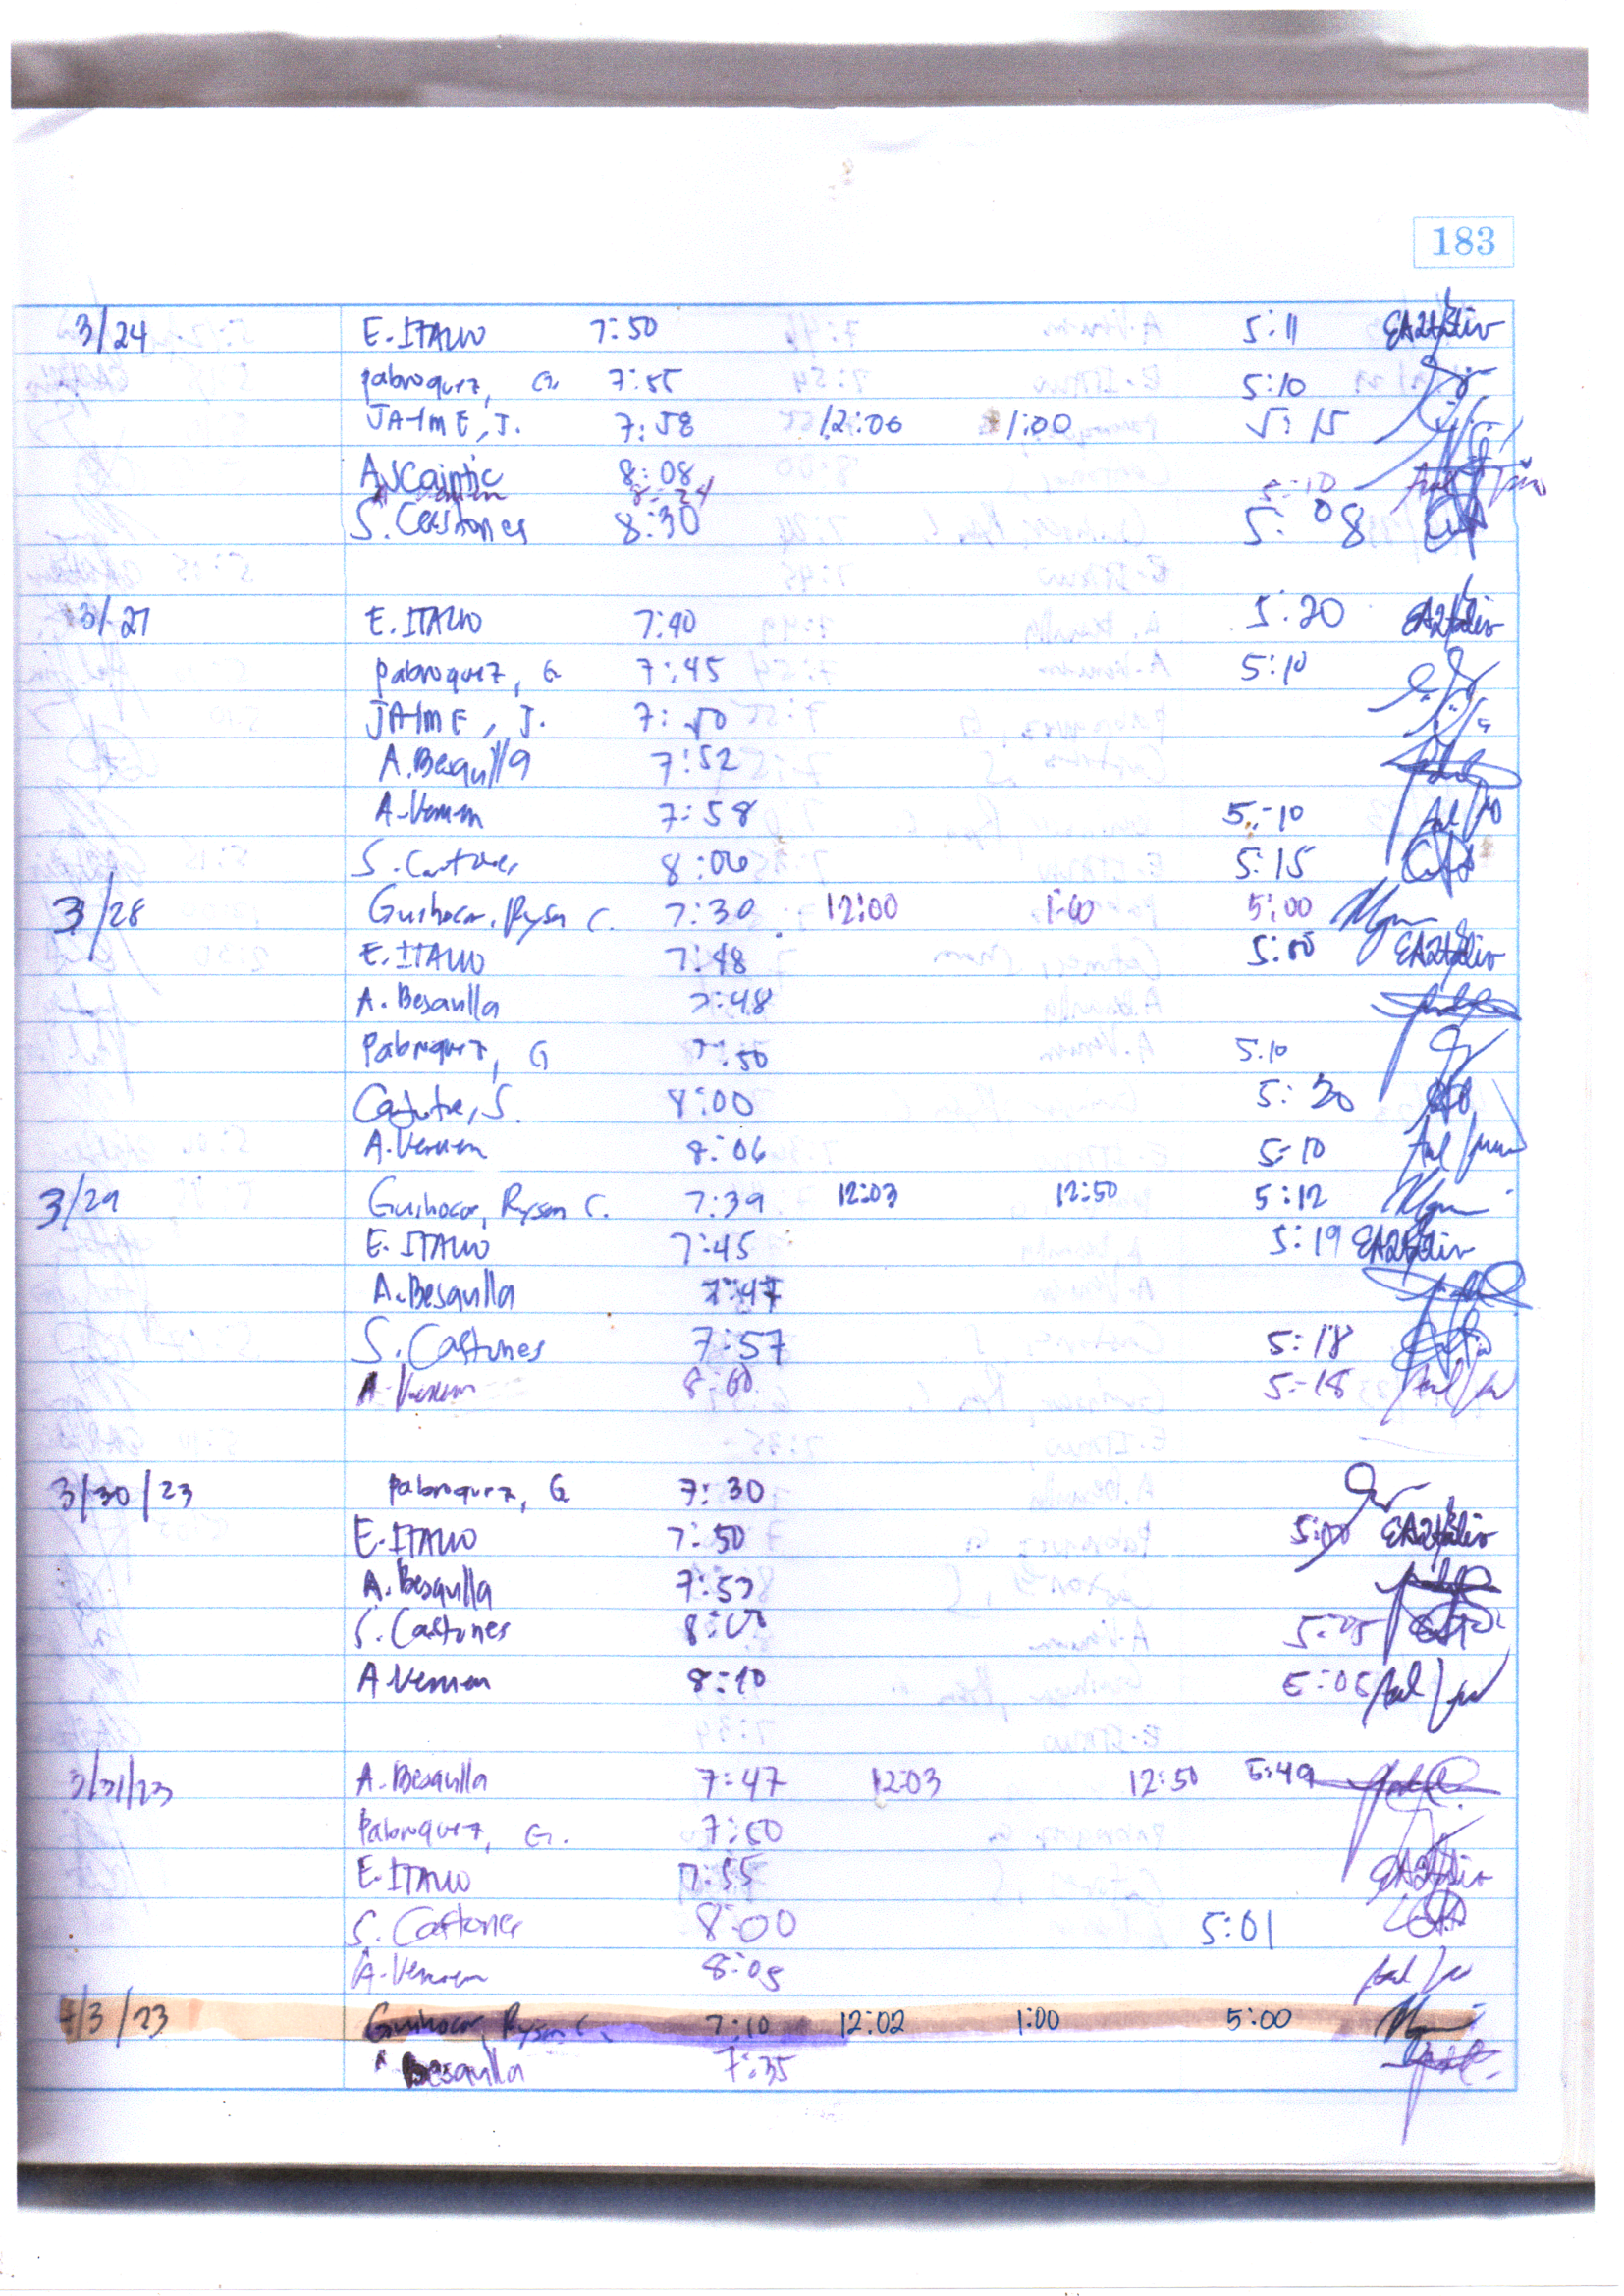 183
3/24 E. ITALIO 7:50 5:11
Pabroquez, G. 7:55 5:10
JAIME, J. 7:58 12:06 1:00 5:15
8:08
8:24 5:10
S. Castones 8:30 5:08
3/27 E. ITALIO 7:40 5:20
Pabroquez, G 7:45 5:10
JAIME, J. 7:50
A. Besaulla 7:52
A. 7:58 5:10
S. Castones 8:06 5:15
3/28 Guihocor, Ryson C. 7:30 12:00 1:00 5:00
E. ITALIO 7:48 5:00
A. Besaulla 7:48
Pabroquez, G 7:50 5:10
S. 8:00 5:20
A. 8:06 5:10
3/29 Guihocor, Ryson C. 7:39 12:03 12:50 5:12
E. ITALIO 7:45 5:19
A. Besaulla 7:47
S. Castones 7:57 5:18
A. 8:00 5:18
3/30/23 Pabroquez, G 7:30
E. ITALIO 7:50 5:00
A. Besaulla 7:53
S. Castones 5:05
A. 8:10 5:05
3/31/23 A. Besaulla 7:47 12:03 12:50 5:49
Pabroquez, G. 7:50
E. ITALIO 7:55
S. Castones 8:00 5:01
A. 8:05
4/3/23 Guihocor, Ryson C. 7:10 12:02 1:00 5:00
Besaulla 7:35